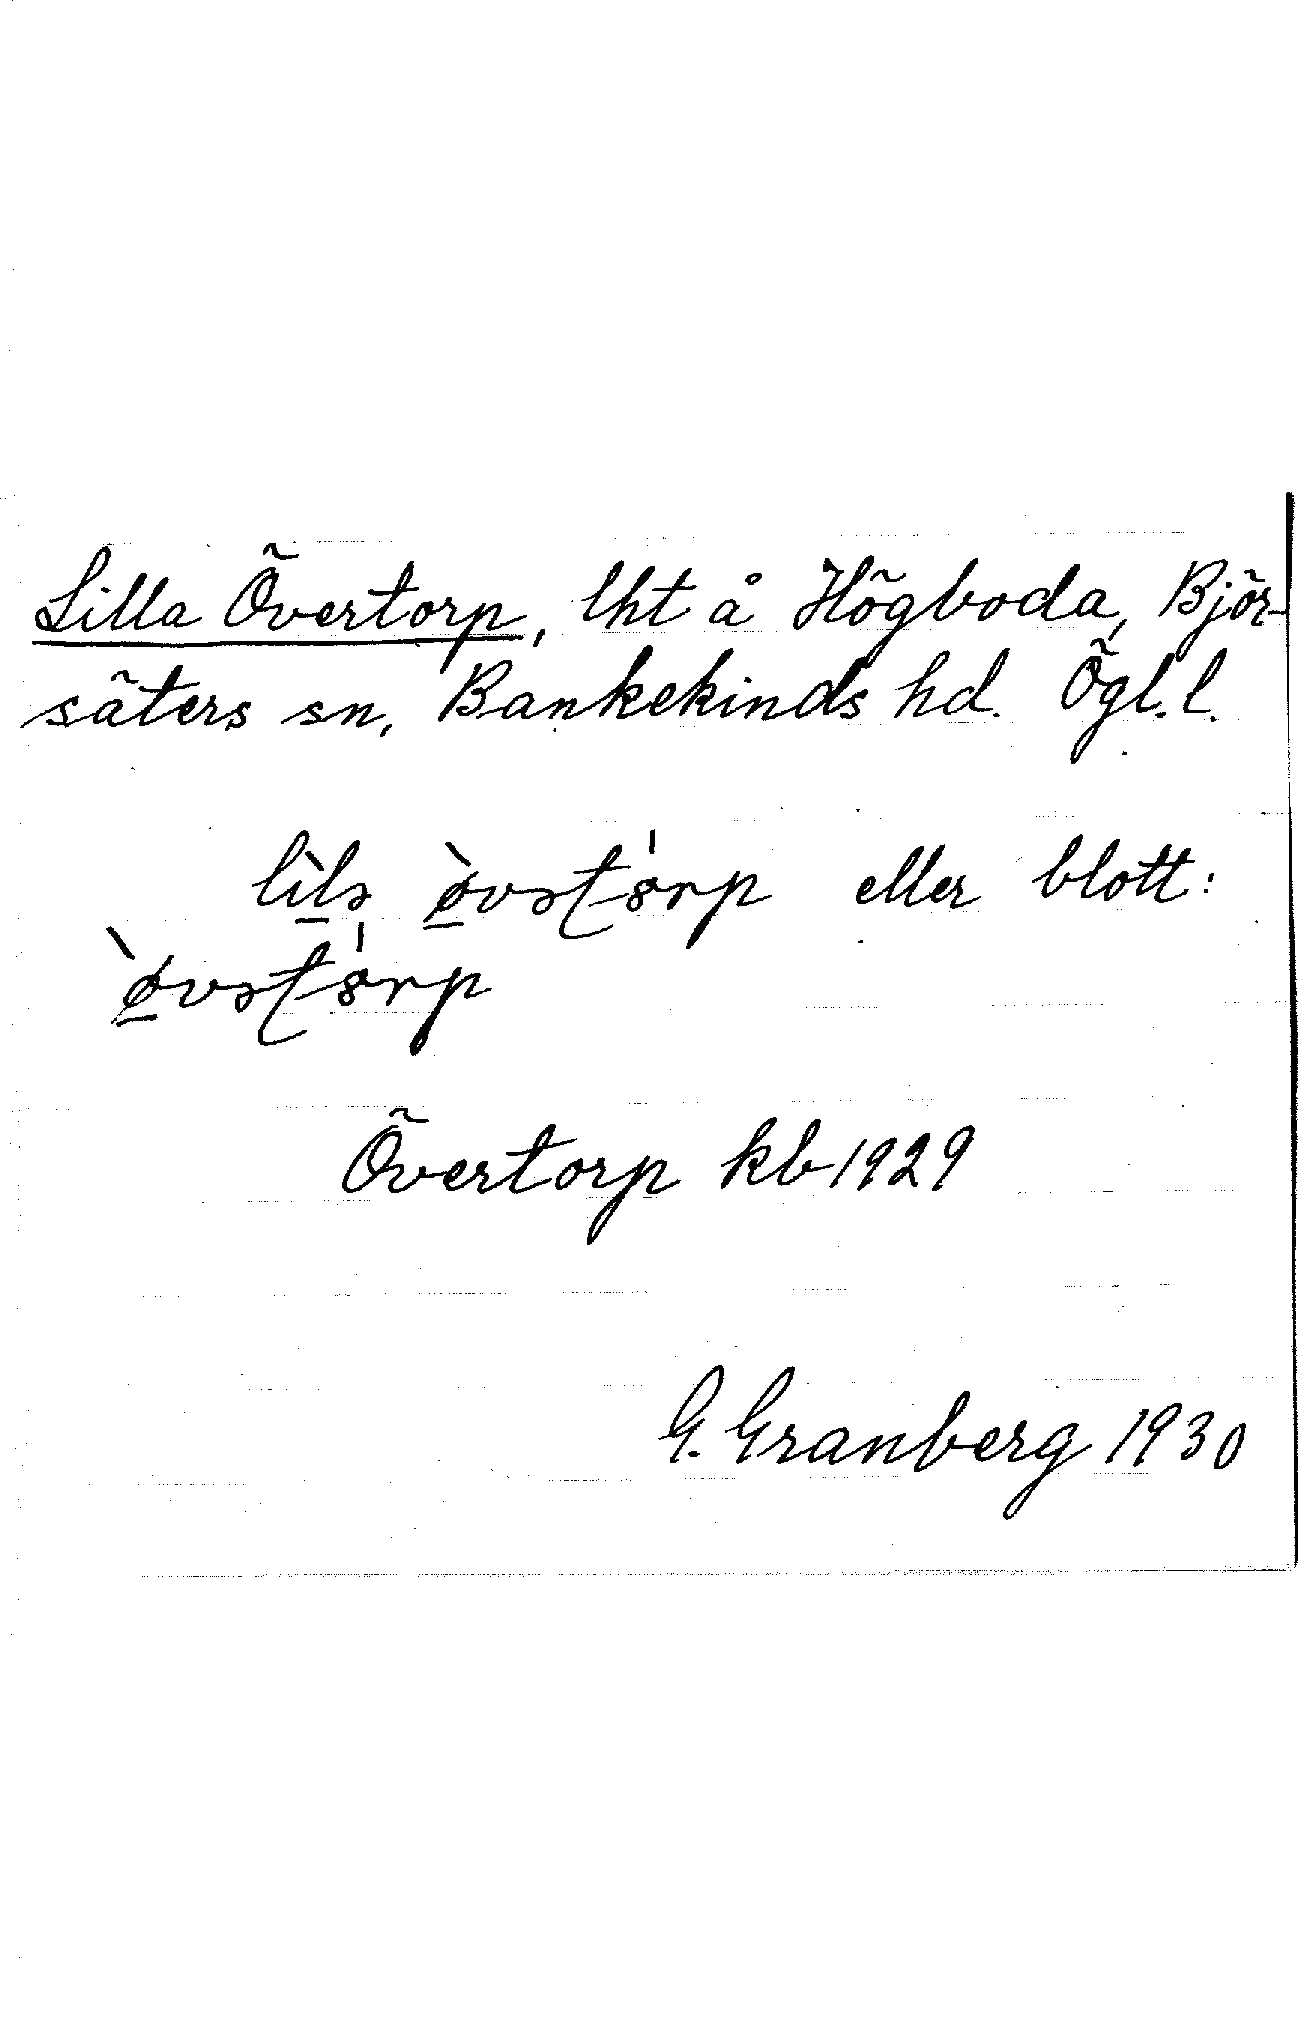 Lilla Övertorp, lht å Högboda, Björ-
säters sn, Bankekinds hd. Ögl. l.
lìlə ø̀vətórp eller blott:
ø̀vətórp
Övertorp kb 1929
G. Granberg 1930